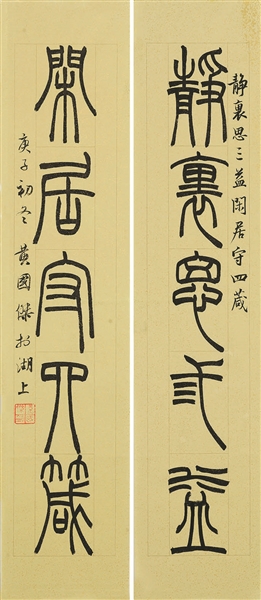 靜裏思三益閑居守四箴
靜裏思弎益
閑居守四箴
庚子初冬黃國傑於湖上